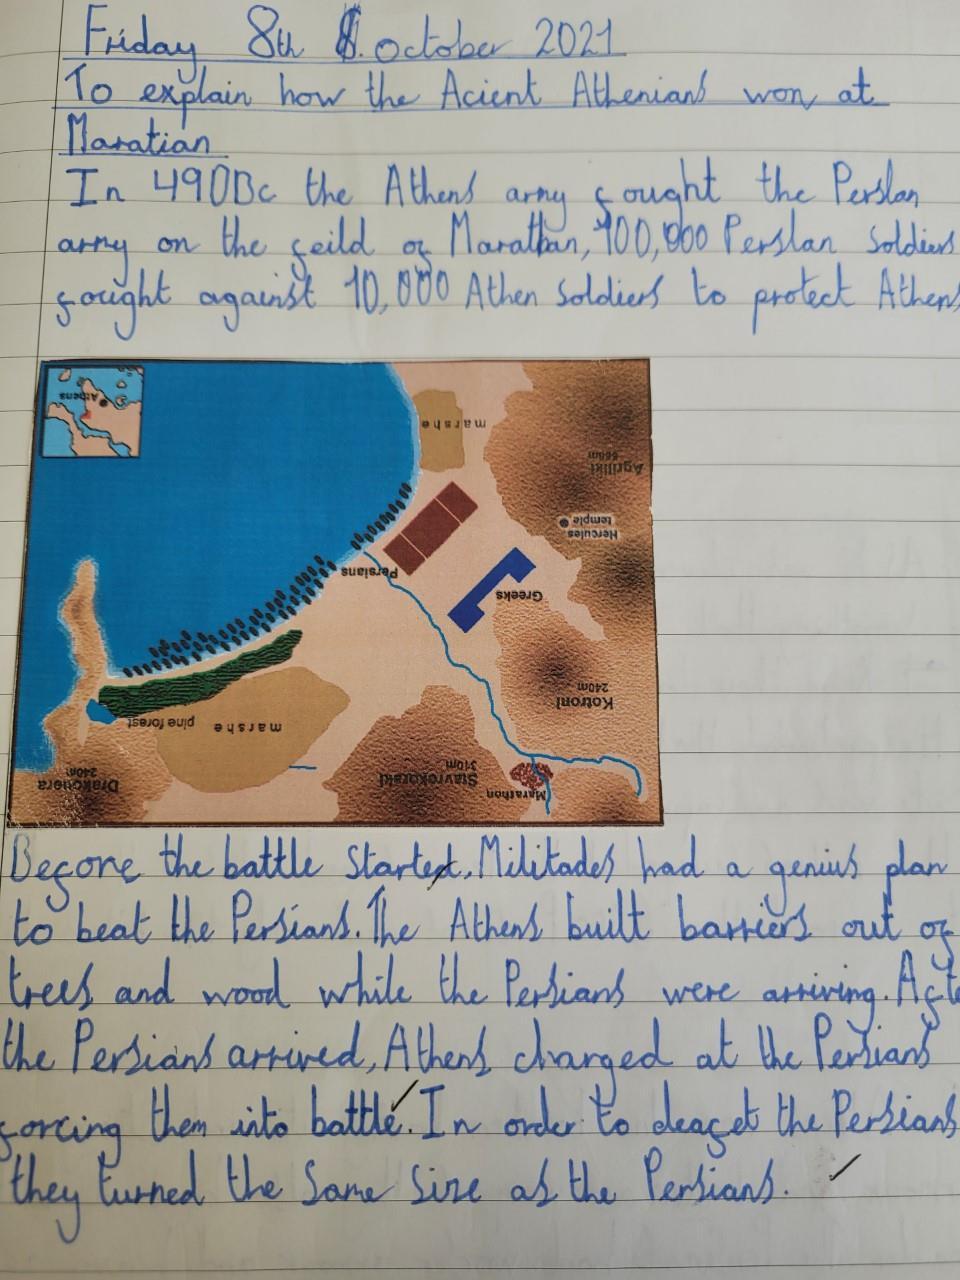 Friday 8th October 2021
To explain how the Acient Athenians won at
Maratian
In 490Bc the Athens army fought the Persian
army on the feild of Marathan, 100,000 Persian soldiers
fought against 10,000 Athen soldiers to protect Athens
Athens
marshe
Agriliki
600m
Hercules
temple
Persians
Greeks
Kotroni
240m
pine forest
marshe
Stavrokoraki
310m
Marathon
Drakonera
240m
Before the battle started, Militades had a genius plan
to beat the Persians. The Athens built barriers out of
trees and wood while the Persians were arriving. Afte
the Persians arrived, Athens charged at the Persians
forcing them into battle. In order to deafet the Persians
they turned the same size as the Persians.